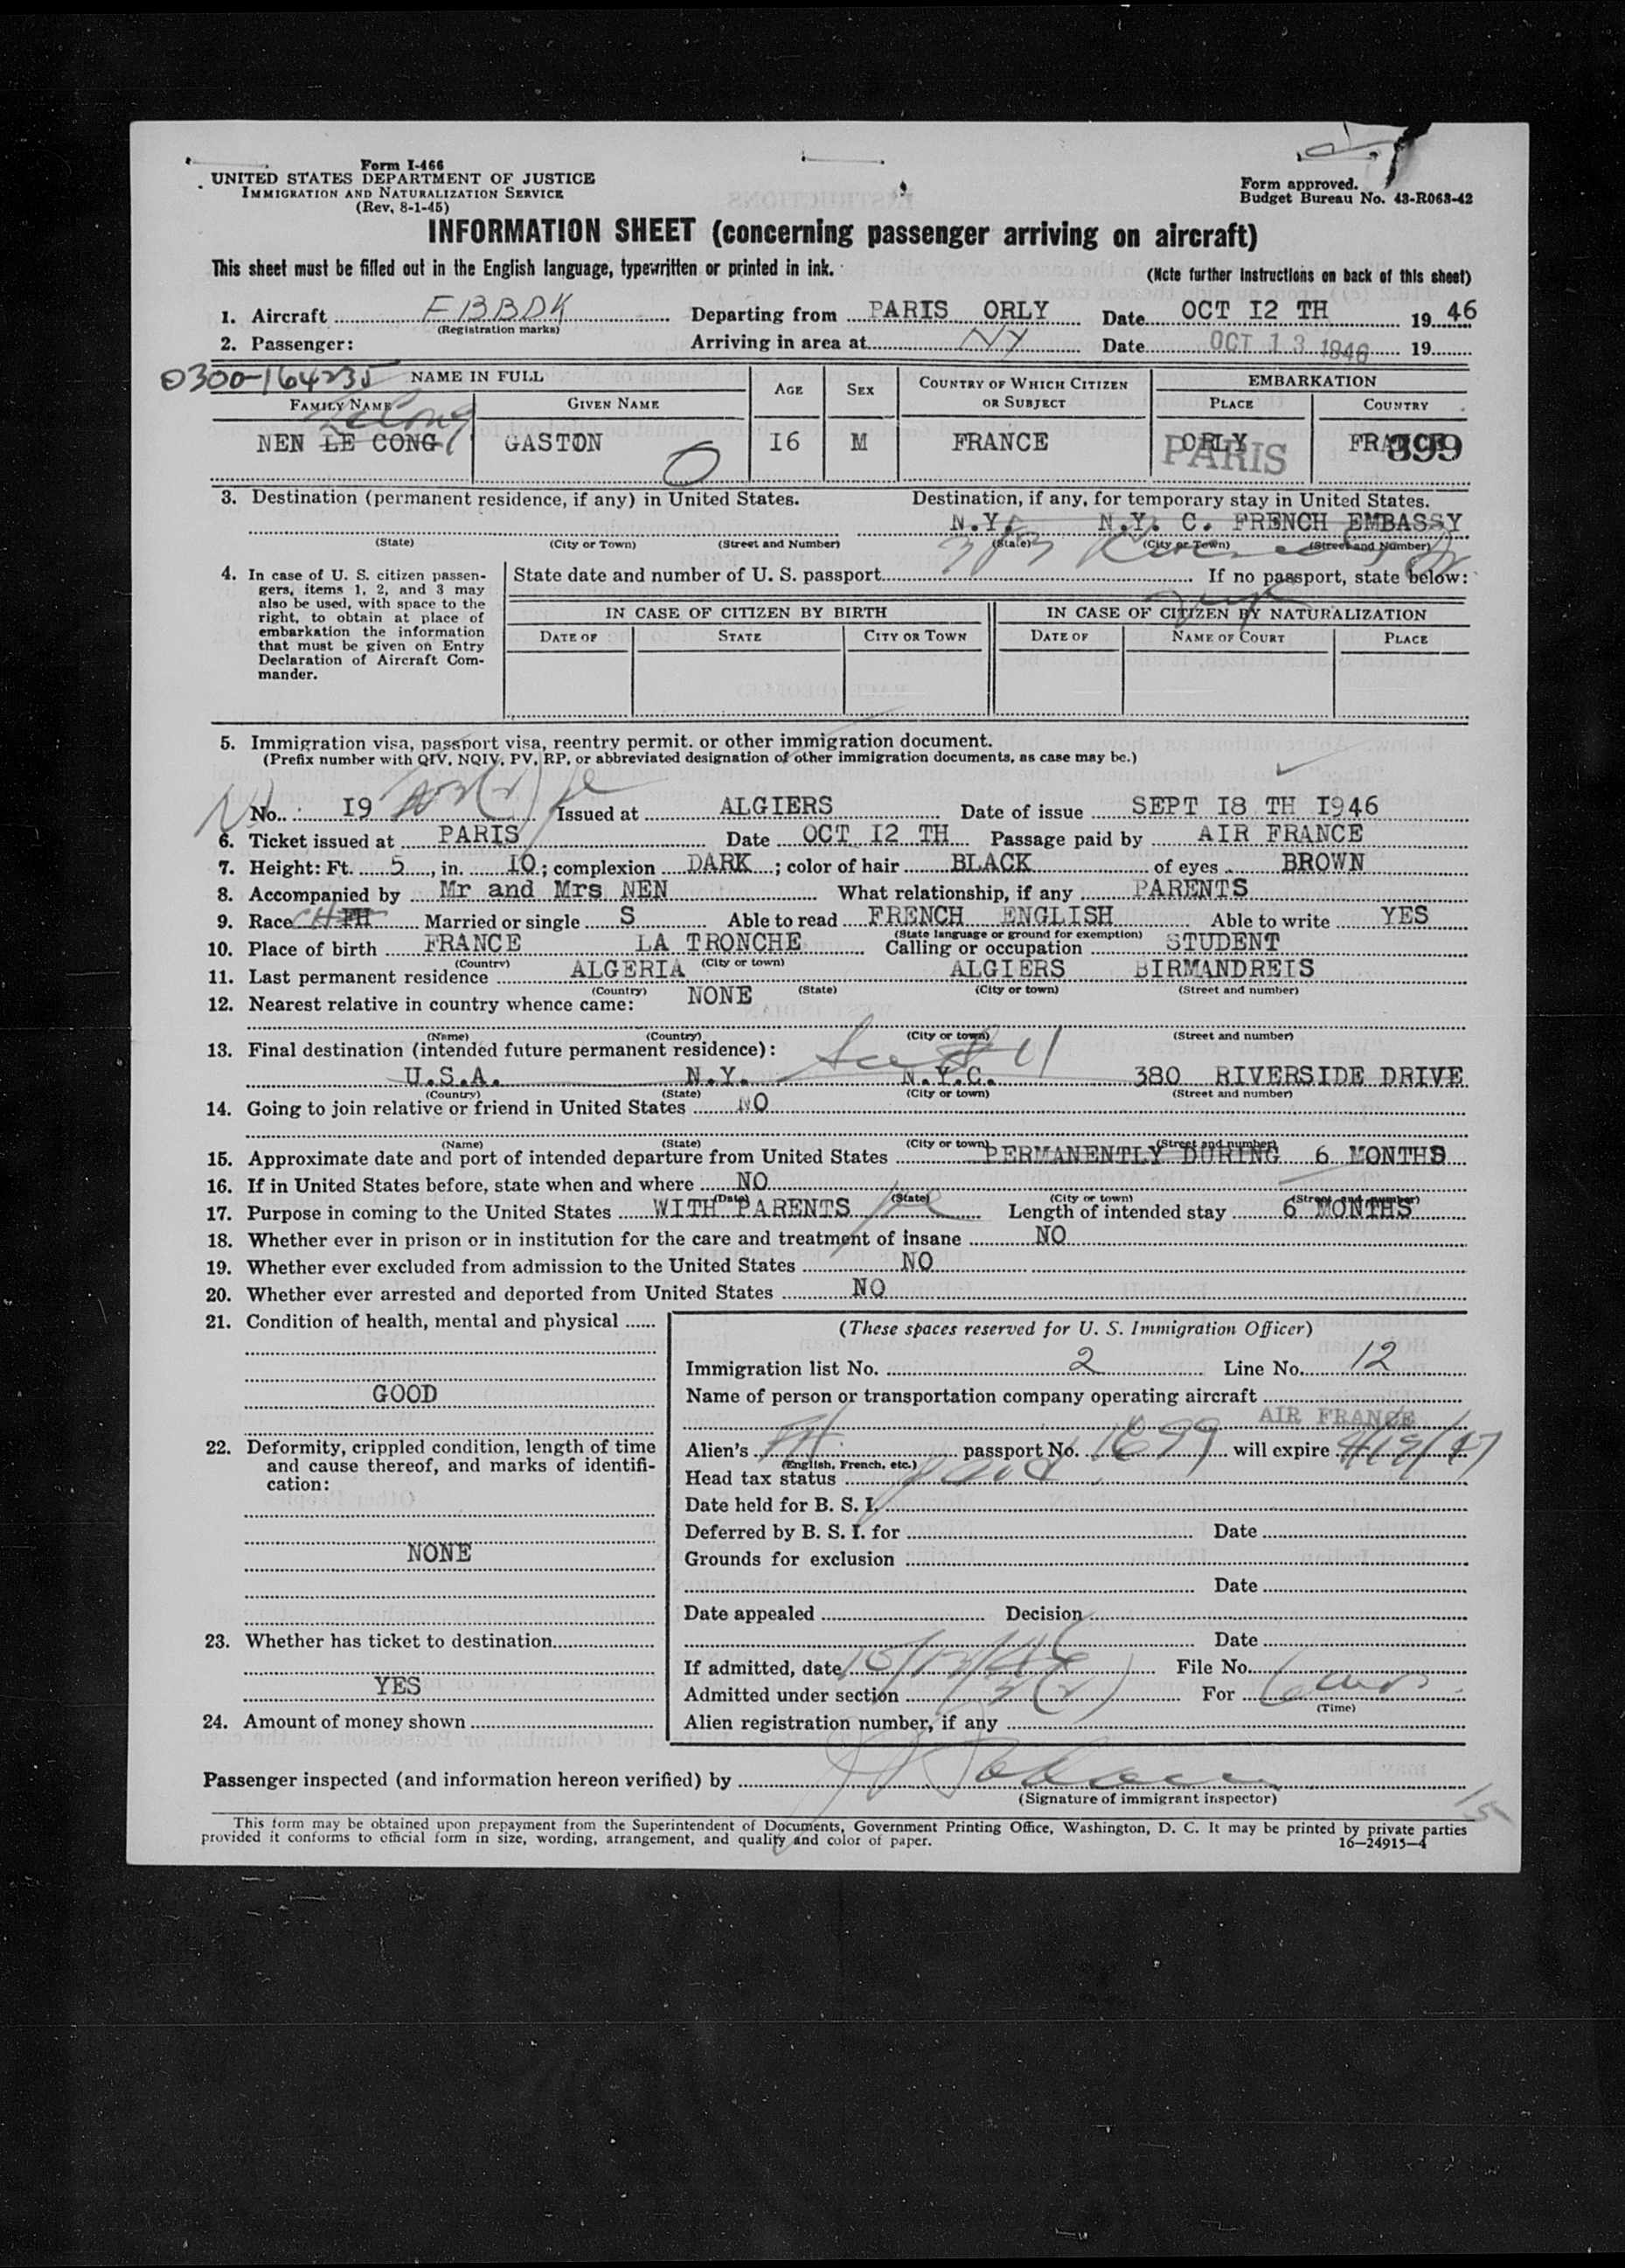 Form I-466
UNITED STATES DEPARTMENT OF JUSTICE
IMMIGRATION AND NATURALIZATION SERVICE
(Rev. 8-1-45)
Form approved.
Budget Bureau No. 43-R063-42
INFORMATION SHEET (concerning passenger arriving on aircraft)
This sheet must be filled out in the English language, typewritten or printed in ink.
(Note further instructions on back of this sheet)
1. Aircraft FBBDK Departing from PARIS ORLY Date OCT I2 TH 19 46
(Registration marks)
2. Passenger: Arriving in area at NY Date OCT 13 1946 19
0300-164235 NAME IN FULL AGE SEX COUNTRY OF WHICH CITIZEN OR SUBJECT EMBARKATION
FAMILY NAME GIVEN NAME PLACE COUNTRY
Le Cong
NEN LE CONG GASTON O I6 M FRANCE ORLY PARIS FRANCE 899
3. Destination (permanent residence, if any) in United States. Destination, if any, for temporary stay in United States.
N.Y. N.Y. C. FRENCH EMBASSY
(State) (City or Town) (Street and Number) (State) (City or Town) (Street and Number)
4. In case of U. S. citizen passengers, items 1, 2, and 3 may also be used, with space to the right, to obtain at place of embarkation the information that must be given on Entry Declaration of Aircraft Commander.
State date and number of U. S. passport If no passport, state below:
IN CASE OF CITIZEN BY BIRTH IN CASE OF CITIZEN BY NATURALIZATION
DATE OF STATE CITY OR TOWN DATE OF NAME OF COURT PLACE
5. Immigration visa, passport visa, reentry permit. or other immigration document.
(Prefix number with QIV, NQIV, PV, RP, or abbreviated designation of other immigration documents, as case may be.)
No. I9 Issued at ALGIERS Date of issue SEPT I8 TH I946
6. Ticket issued at PARIS Date OCT I2 TH Passage paid by AIR FRANCE
7. Height: Ft. 5, in. IO; complexion DARK; color of hair BLACK of eyes BROWN
8. Accompanied by Mr and Mrs NEN What relationship, if any PARENTS
9. Race CH FH Married or single S Able to read FRENCH ENGLISH Able to write YES
(State language or ground for exemption)
10. Place of birth FRANCE LA TRONCHE Calling or occupation STUDENT
(Country) (City or town)
11. Last permanent residence ALGERIA ALGIERS BIRMANDREIS
(Country) (State) (City or town) (Street and number)
12. Nearest relative in country whence came: NONE
(Name) (Country) (City or town) (Street and number)
13. Final destination (intended future permanent residence):
U.S.A. N.Y. N.Y.C. 380 RIVERSIDE DRIVE
(Country) (State) (City or town) (Street and number)
14. Going to join relative or friend in United States NO
(Name) (State) (City or town) (Street and number)
15. Approximate date and port of intended departure from United States PERMANENTLY DURING 6 MONTHS
16. If in United States before, state when and where NO
(Date) (State) (City or town) (Street and number)
17. Purpose in coming to the United States WITH PARENTS Length of intended stay 6 MONTHS
18. Whether ever in prison or in institution for the care and treatment of insane NO
19. Whether ever excluded from admission to the United States NO
20. Whether ever arrested and deported from United States NO
21. Condition of health, mental and physical
GOOD
22. Deformity, crippled condition, length of time and cause thereof, and marks of identification:
NONE
23. Whether has ticket to destination
YES
24. Amount of money shown
(These spaces reserved for U. S. Immigration Officer)
Immigration list No. 2 Line No. 12
Name of person or transportation company operating aircraft
AIR FRANCE
Alien's FH passport No. 1699 will expire 4/19/47
(English, French, etc.)
Head tax status paid
Date held for B. S. I.
Deferred by B. S. I. for Date
Grounds for exclusion
Date
Date appealed Decision
Date
If admitted, date 10/13/46 File No.
Admitted under section 3(2) For 6 mos
(Time)
Alien registration number, if any
Passenger inspected (and information hereon verified) by
(Signature of immigrant inspector)
This form may be obtained upon prepayment from the Superintendent of Documents, Government Printing Office, Washington, D. C. It may be printed by private parties
provided it conforms to official form in size, wording, arrangement, and quality and color of paper.
16—24915-4